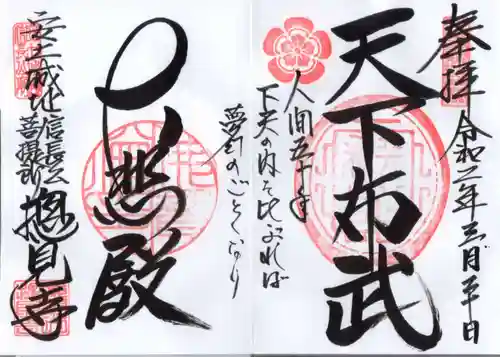 奉拝
令和二年三月
天下布武
人間五十年
下天の内を比ぶれば
夢幻のごとくなり
大悲殿
安土城址
信長公
菩提所
摠見寺